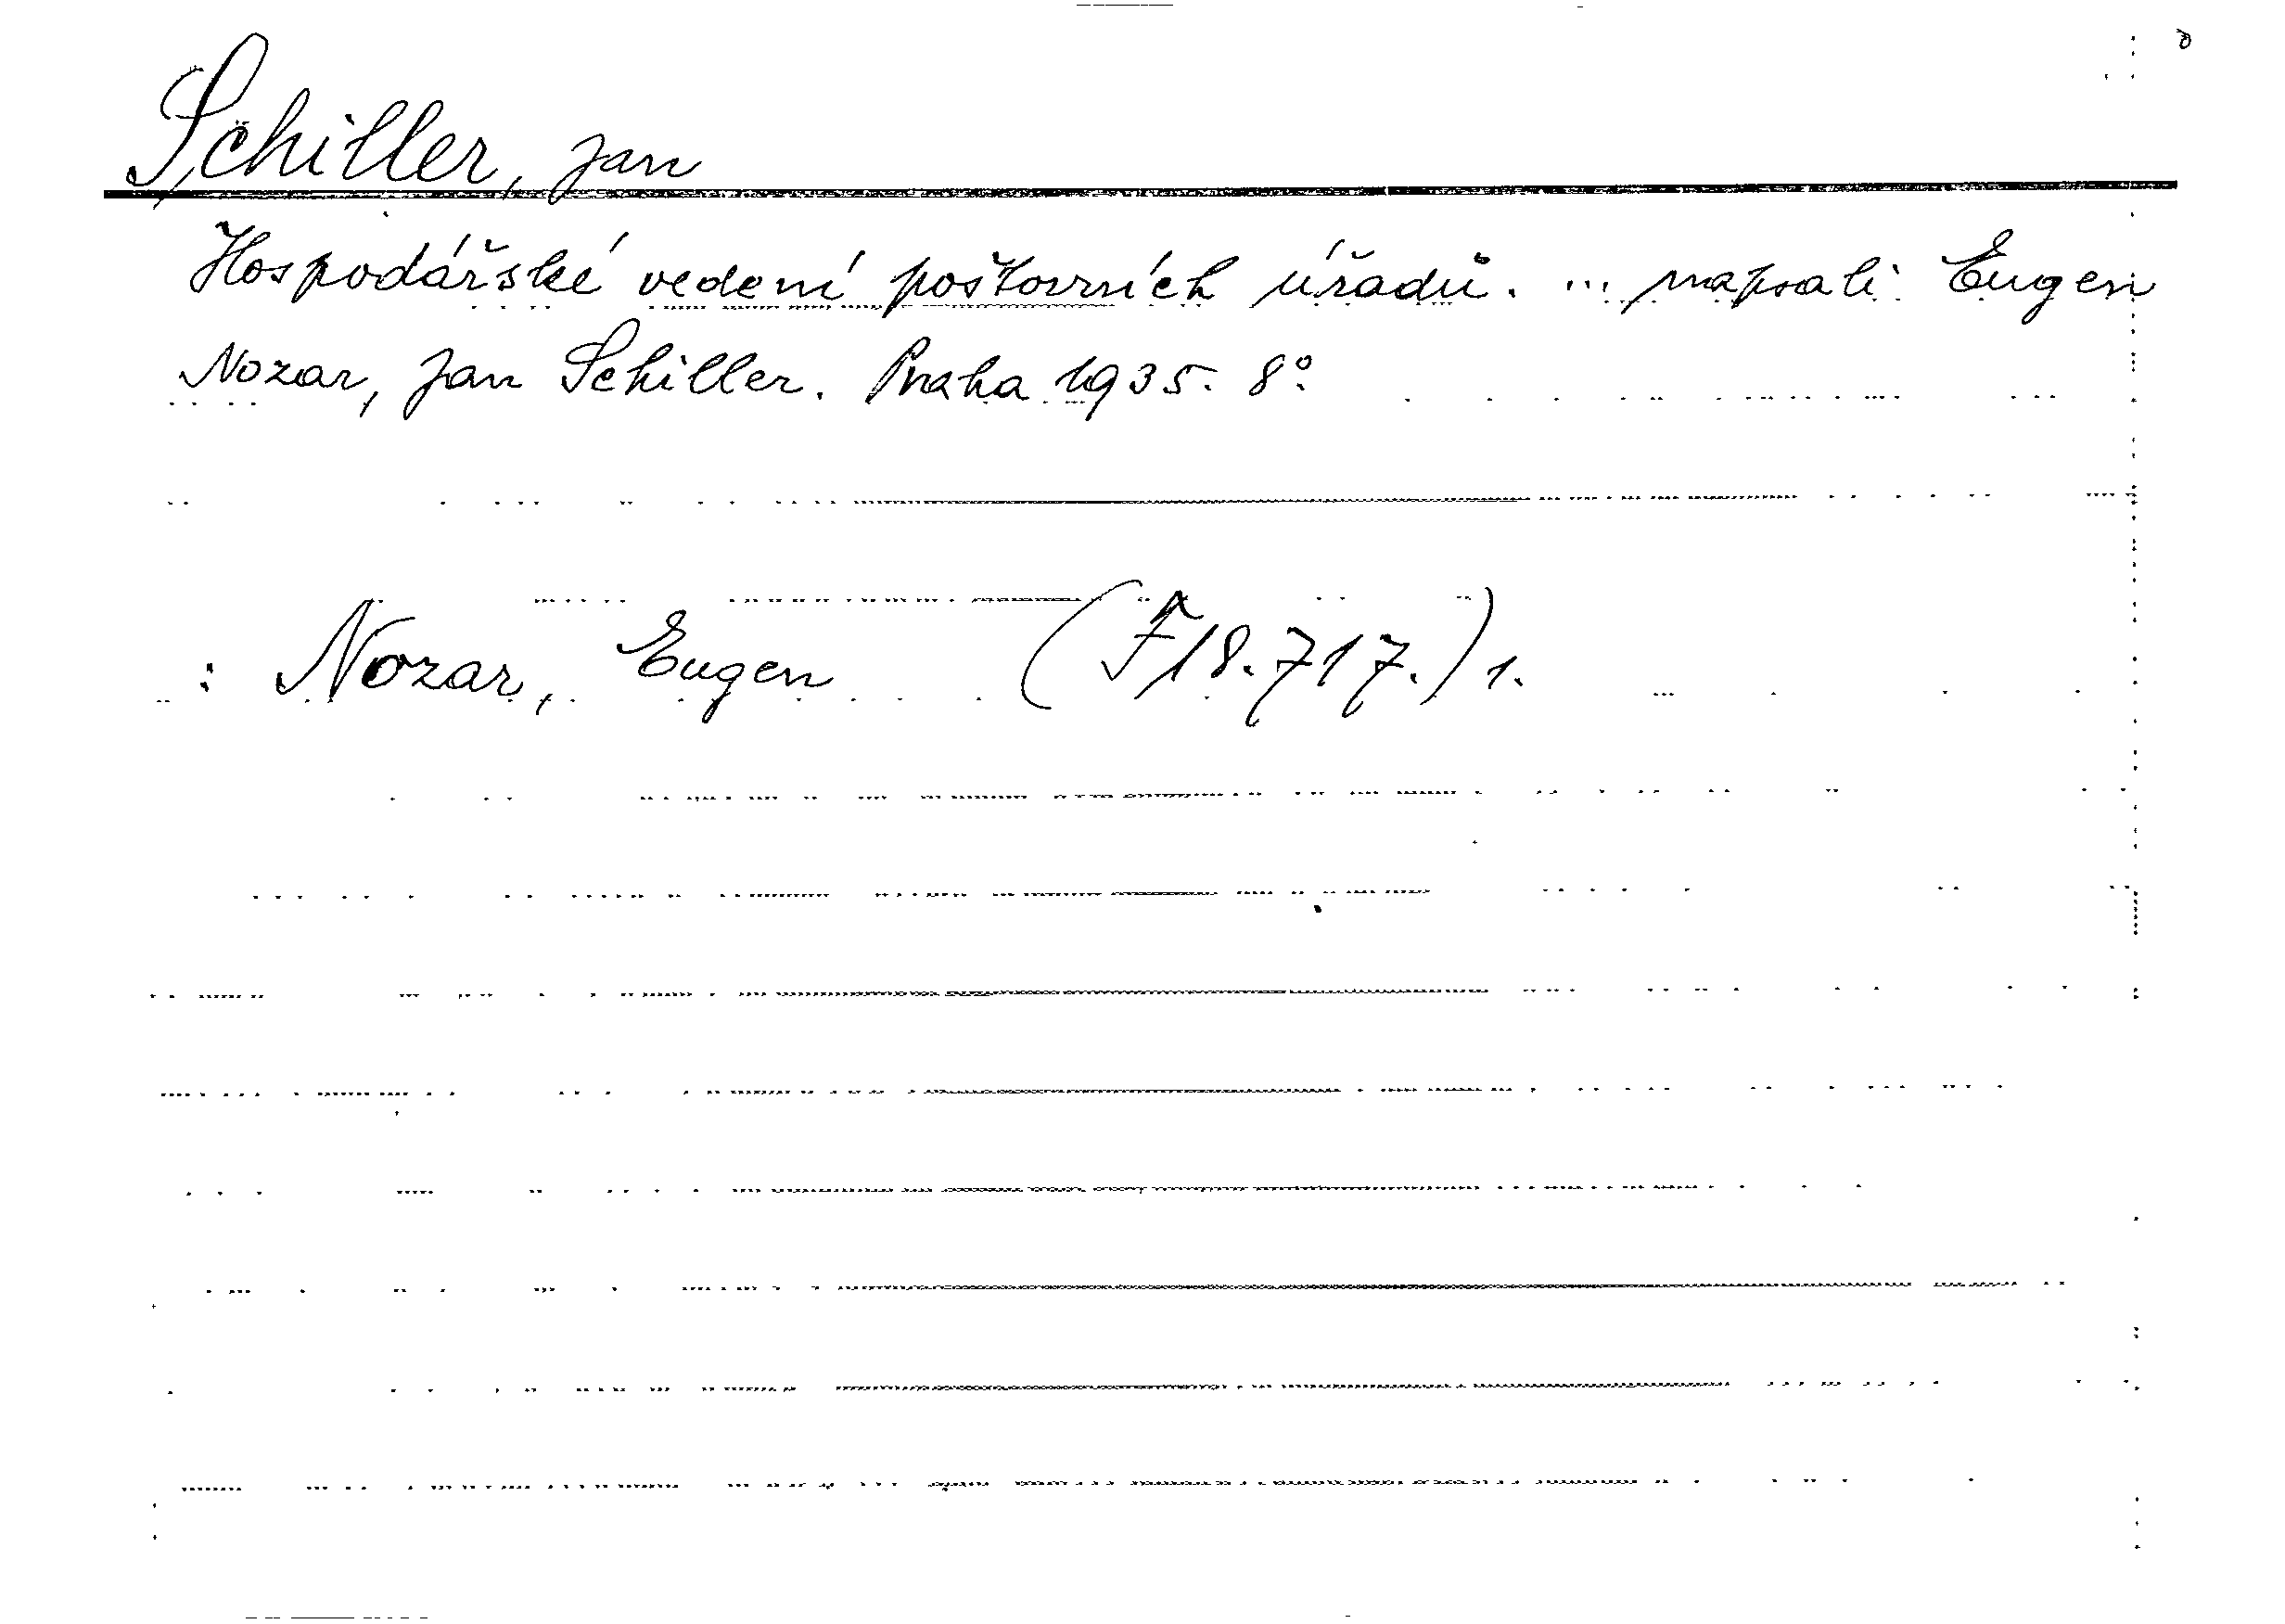 Schiller, Jan
Hospodářské vedení poštovních úřadů. ... napsali Eugen
Nozar, Jan Schiller. Praha 1935. 8°.
: Nozar, Eugen (F 18.717.) 1.